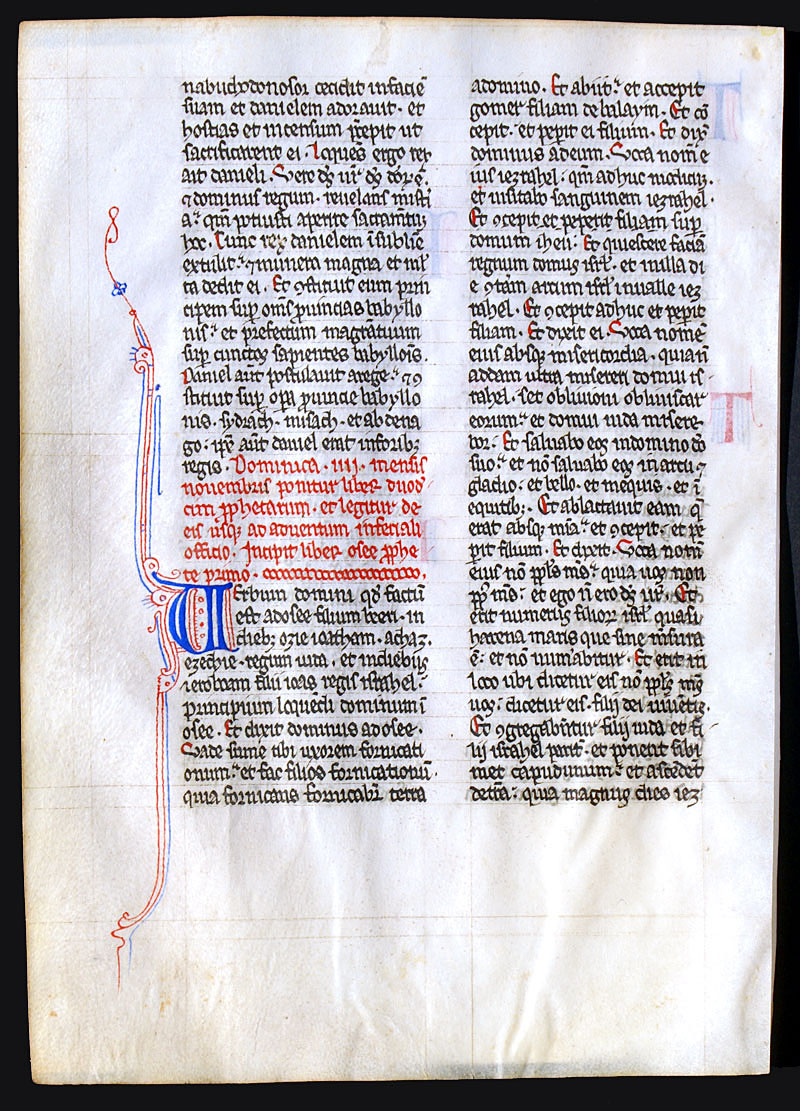 nabuchodonosor cecidit in facie͞
suam et danielem adorauit · et
hostias et incensum p̄cepit ut
sacrificarent ei · Loquēs ergo rex
ait danieli · Vere ds̄ ur̄ ds̄
⁊ dominus regum · reuelans misti
a · qm̄ potuisti aperire sacramētū
hoc · Tunc rex danielem ī sublime
extulit · ⁊ munera magna et ml̄
ta dedit ei · Et ꝯstituit eum prin
cipem sup̄ om̄s prouincias babyllo
nis · et prefectum magr̄atuum
sup̄ cunctos sapientes babyllōis ·
Daniel aūt postulauit a rege · ⁊ ꝯ
stituit sup̄ opa prouincie babyllo
nis · sydrach · misach · et abdena
go · ip̄e aūt daniel erat in forib;
regis · Dominica · iiii · mensis
nouembris ponitur liber duod
cim ꝓphetarum · et legitur de
eis usq; ad aduentum in feriali
officio · Incipit liber osee ꝓphe
te primo ·
Verbum domini qd̄ factū
est ad osee filium beeri · in
dieb; ozie ioatham · achaz ·
ezechie · regum iuda · et in diebus
ieroboam filii ioas regis israhel ·
principium loquēdi dominum ī
osee · Et dixit dominus ad osee ·
Vade sume tibi uxorem fornicati
onum · et fac filios fornicationū ·
quia fornicans fornicabr̄ terra
a domino · Et abiit · et accepit
gomer filiam debalaym · Et cō
cepit · et pepit ei filium · Et dix̄
dominus ad eum · Voca nom̄ e
ius iezrahel · qm̄ adhuc modicū ·
et uisitabo sanguinem iezrahel ·
Et ꝯcepit et peperit filiam sup̄
domum iheu · Et quiescere faciā
regnum domus isrl̄ · et in illa di
e ꝯtām arcum isrl̄ in ualle iez
rahel · Et ꝯcepit adhuc et pepit
filiam · Et dixit ei · Voca nomē
eius absq; misericordia · quia n̄
addam ultra misereri domui is
rahel · set obliuioni obliuiscar
eorum · et domui iuda misere
bor · Et saluabo eos in domino dō
suo · et nō saluabo eos in arcu ⁊
gladio · et bello · et in equis · et ī
equitib; · Et ablactauit eam q̄
erat absq; mīa · et ꝯcepit · et pe
pit filium · Et dixit · Voca nom̄
eius nō ppl̄s ms̄ · quia uos non
pp̄s ms̄ · et ego n̄ ero ds̄ ur̄ · Et
erit numerus filior isrl̄ quasi
harena maris que sine mēsura
ē · et nō num̄abitur · Et erit in
loco ubi dicetur eis nō ppl̄s ms̄
uos · dicetur eis · filii dei uiuētis ·
Et ꝯgregabūtur filii iuda et fi
lii israhel parit̄ · et ponent sibi
met capud unum · et ascēdent
de tr̄a · quia magnus dies iez